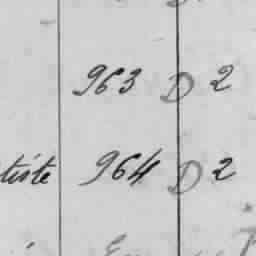 963 D 2
tiste 964 D 2